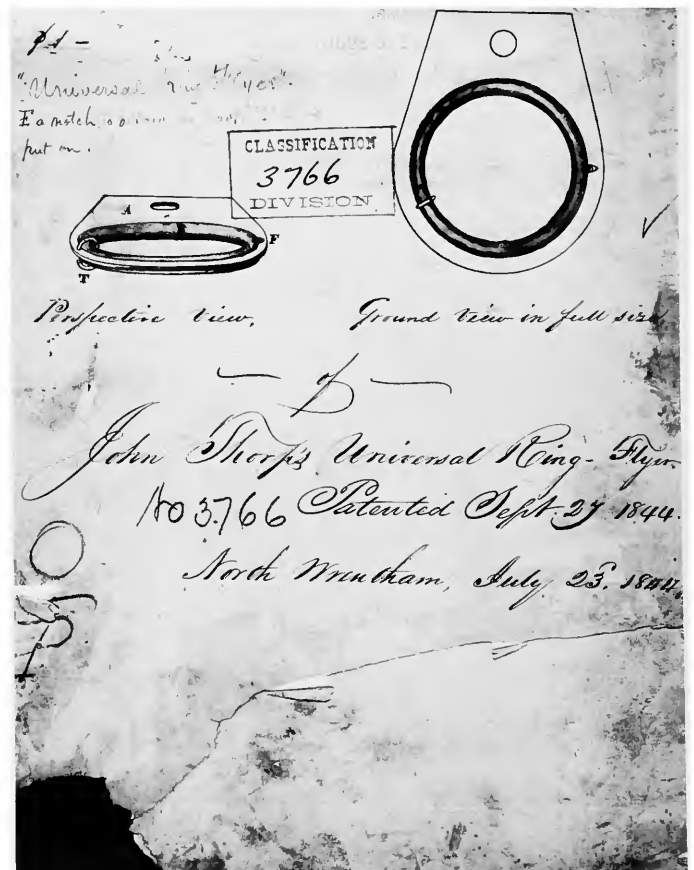 "Universal
F a notch
put on.
CLASSIFICATION
3766
DIVISION
A
F
T
Perspective View.
Ground View in full size.
— of —
John Thorp's Universal Ring-Flyer.
No 3.766 Patented Sept. 27 1844.
North Wrentham, July 23. 1844.